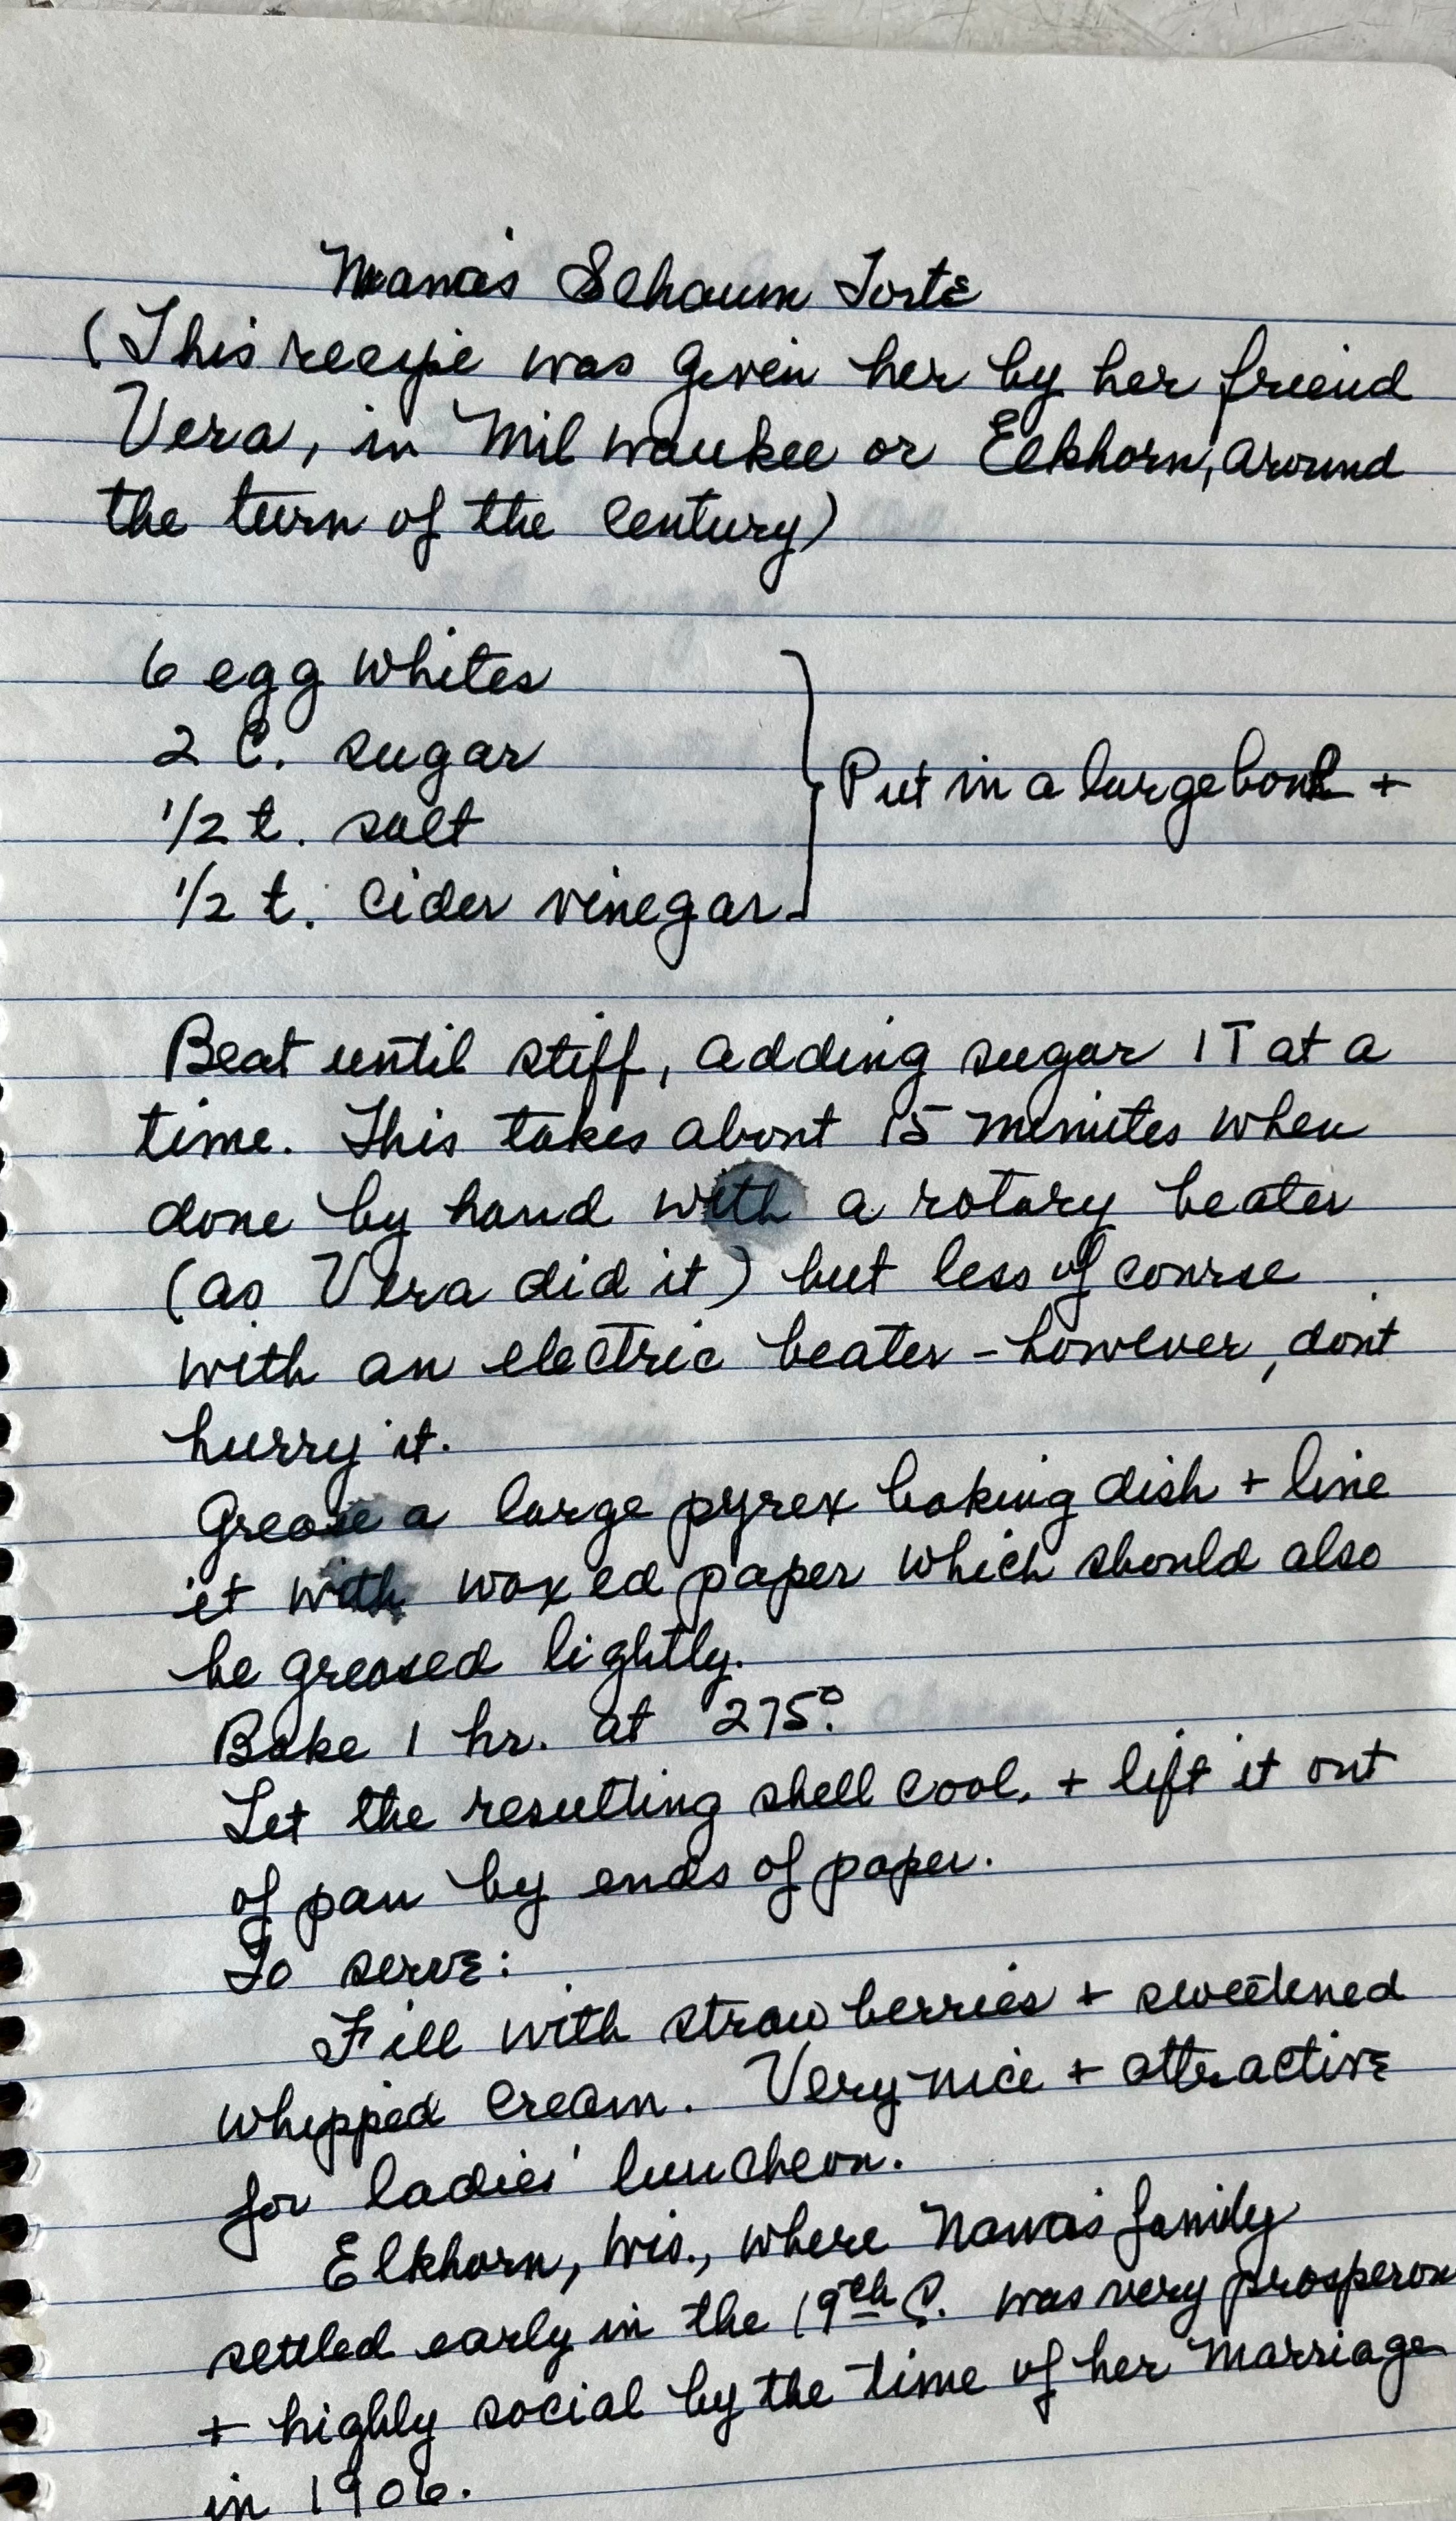 Nana's Schaum Torte
(This recipe was given her by her friend
Vera, in Milwaukee or Elkhorn, around
the turn of the century)
6 egg whites
2 C. sugar
1/2 t. salt
1/2 t. cider vinegar
Put in a large bowl +
Beat until stiff, adding sugar 1T at a
time. This takes about 15 minutes when
done by hand with a rotary beater
(as Vera did it) but less of course
with an electric beater - however, don't
hurry it.
Grease a large pyrex baking dish + line
it with waxed paper which should also
be greased lightly.
Bake 1 hr. at 275°.
Let the resulting shell cool, + lift it out
of pan by ends of paper.
To serve:
Fill with strawberries + sweetened
whipped cream. Very nice + attractive
for ladies' luncheon.
Elkhorn, Wis., where Nana's family
settled early in the 19th C. was very prosperous
+ highly social by the time of her marriage
in 1906.